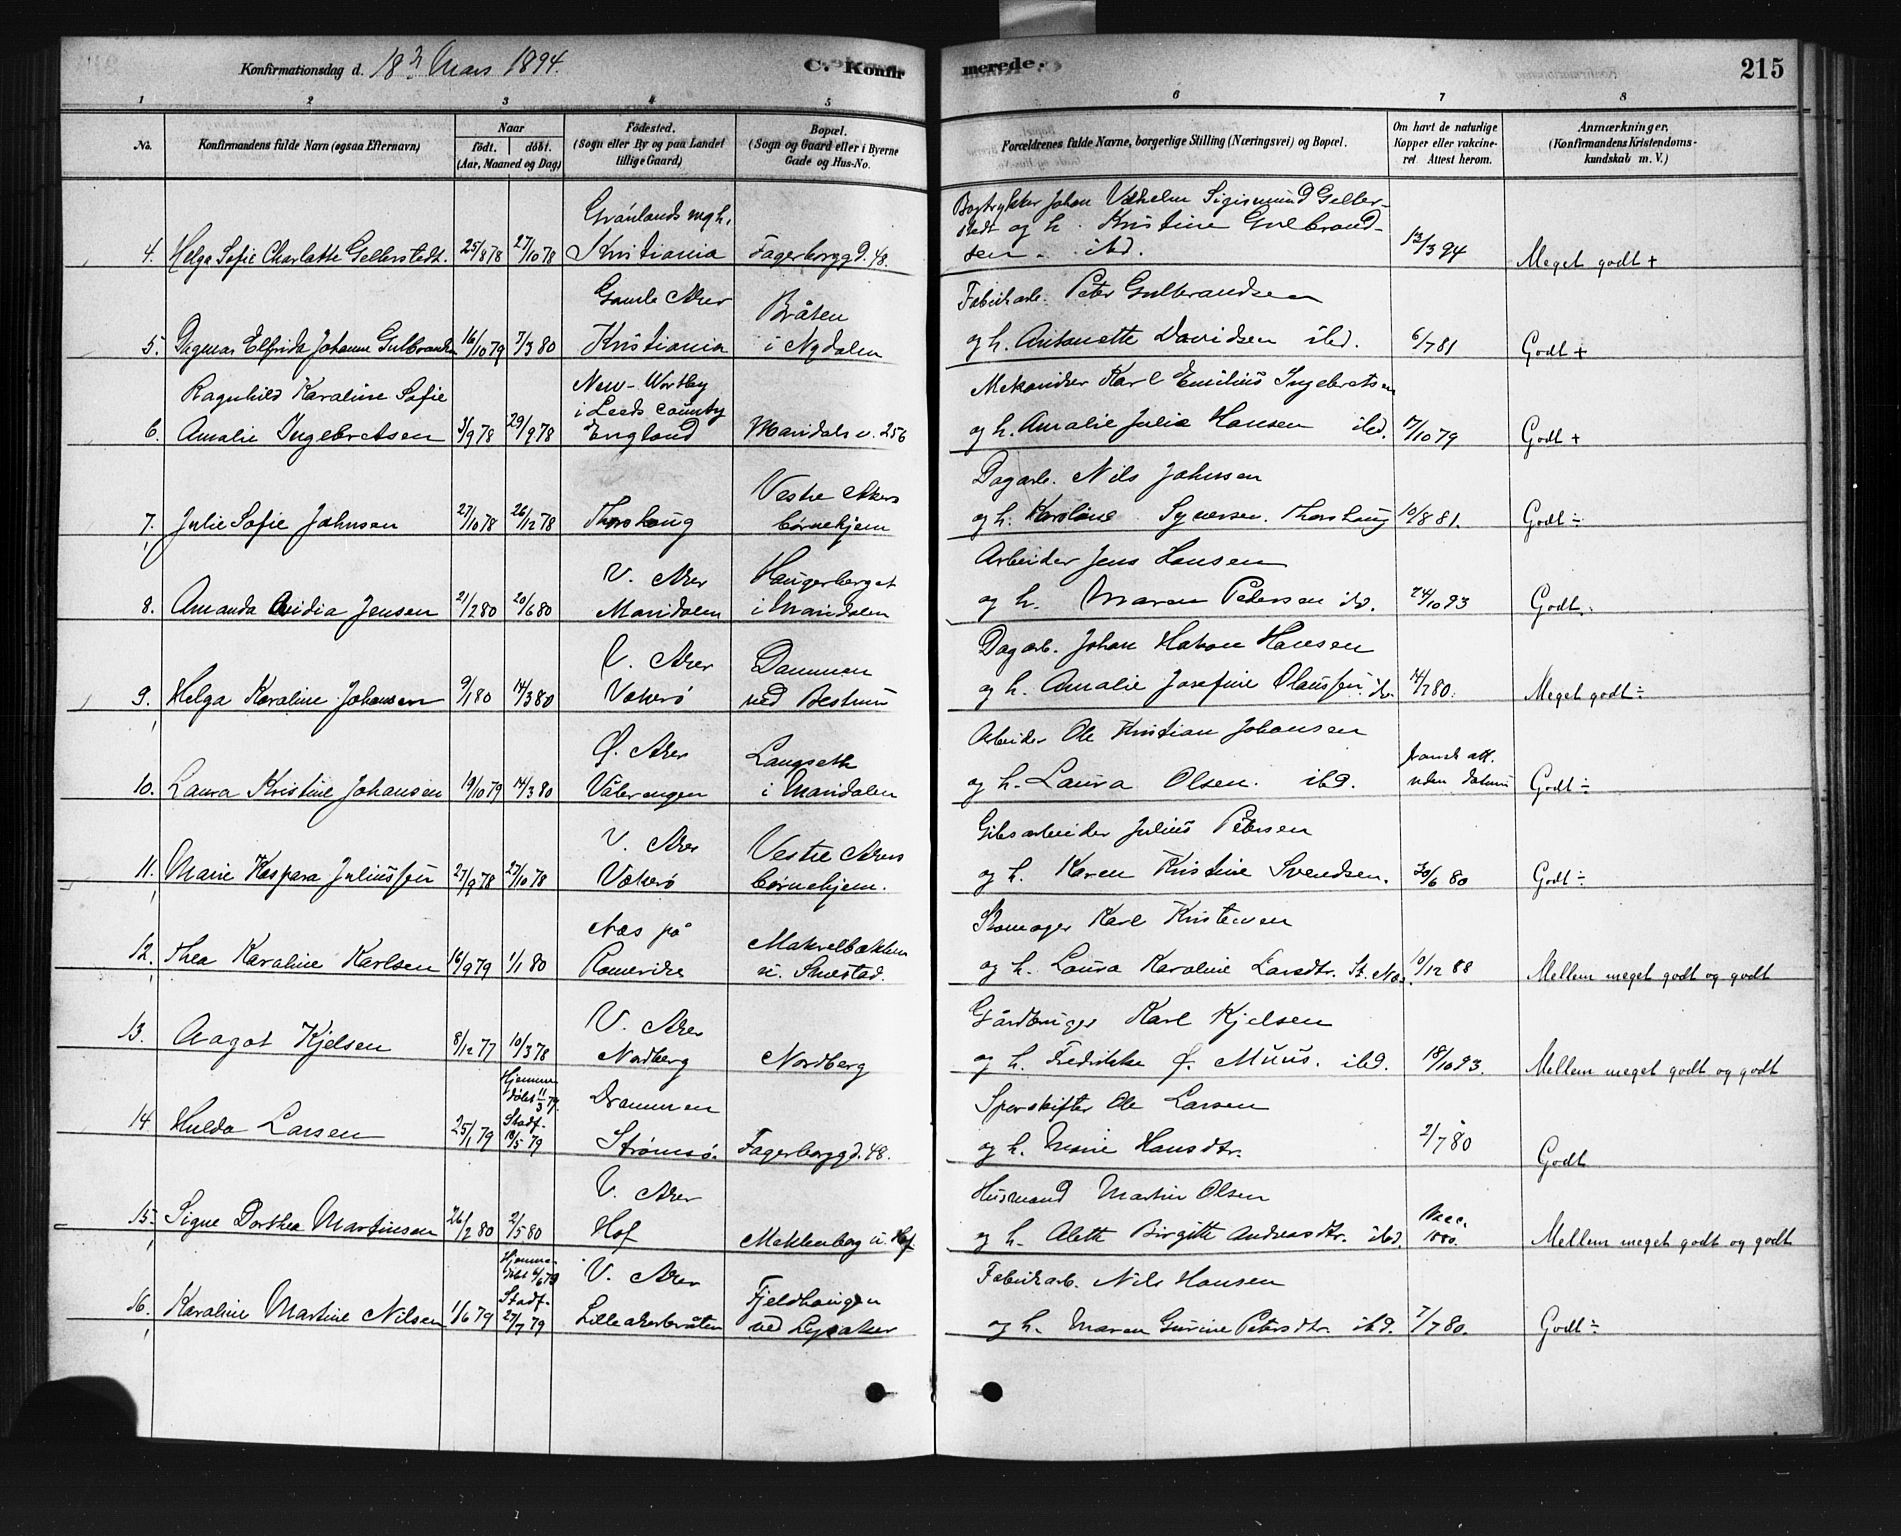 Konfirmationsdag d. 18de Mars 1894.
C. Konfirmerede.
215
1 2 3 4 5 6 7 8
No.
Konfirmandens fulde Navn (ogsaa Efternavn)
Naar
født. døbt.
(Aar, Maaned og Dag)
Fødested.
(Sogn eller By og paa Landet
tillige Gaard)
Bopæl.
(Sogn og Gaard eller i Byerne
Gade og Hus-No.
Forældrenes fulde Navne, borgerlige Stilling (Næringsvei) og Bopæl.
Om havt de naturlige
Kopper eller vakcine-
ret Attest herom.
Anmærkninger.
(Konfirmandens Kristendoms-
kundskab m. V.)
Grønlands mgh.
Bogtrykker Johan Vilhelm Sigismund Geller-
stedt og h. Kristine Gulbrand-
4. Helga Sofie Charlotte Gellerstedt. 25/8 78 27/10 78 Kristiania Fagerborggd. 48. sen. ibd. 13/3 94 Meget godt +
Gamle Aker Bråten Fabrikarb. Peter Gulbrandsen
5. Dagmar Elfrida Johanne Gulbrandsen 16/10 79 7/3 80 Kristiania i Nydalen og h. Antonette Davidsen ibd. 6/7 81 Godt +
Ragnhild Karoline Sofie New-Wortley
i Leeds County Mekaniker Karl Emilius Ingebretsen
6. Amalie Ingebretsen 3/9 78 29/9 78 England Maridals v. 256 og h. Amalie Julie Hansen ibd. 17/10 79 Godt +
Vestre Akers Dagarb. Nils Johnsen
7. Julie Sofie Johnsen 27/10 78 26/12 78 Thorshaug børnehjem og h. Karoline Syversen. Thorshaug 10/8 81. Godt ÷
V. Aker Haugerberget Arbeider Jens Hansen
8. Amanda Jensen 21/2 80 20/6 80 Maridalen i Maridalen og h. Maren Petersen ibd. 24/10 93 Godt.
V. Aker Dammen Dagarb. Johan Hakon Hansen
9. Helga Karoline Johansen 9/1 80 14/3 80 Vækerø ved Bestum og h. Amalie Josefine Olaussen. ibd. 14/7 80. Meget godt ÷
Ø. Aker Langseth Arbeider Ole Kristian Johansen
10. Laura Kristine Johansen 19/10 79 14/3 80 Vålerengen i Maridalen og h. Laura Olsen. ibd. att.
uden datum Godt ÷
V. Aker Vestre Akers Gibsarbeider Julius Petersen
11. Marie Kaspara Juliussen 27/9 78 27/10 78 Vækerø børnehjem. og h. Karen Kristine Svendsen. 30/6 80 Godt ÷
Næs på Makrelbækken Skomager Karl Kristensen
12. Thea Karoline Karlsen 16/9 79 1/1 80 Romerike u. Smestad. og h. Laura Karoline Larsdtr. St. Næs. 10/12 88 Mellem meget godt og godt
V. Aker Gårdbruger Karl Kjelsen
13. Aagot Kjelsen 8/12 77 10/3 78 Nordberg Nordberg og h. Fredrikke Ø. Muus. ibd. 18/10 93. Mellem meget godt og godt
Hjemme-
døbt 11/3 79 Drammen Sporskifter Ole Larsen
14 Hulda Larsen 25/1 79 Stadf.
18/5 79 Strømsø. Fagerborggd. 48. og h. Marie Hansdtr. 2/7 80 Godt
V. Aker Husmand Martin Olsen
15. Signe Dorthea Martinsen 26/2 80 2/5 80 Hof Meklenborg u. Hof. og h. Alette Birgitte Andreasdtr. ibd. Vacc.
1880. Mellem meget godt og godt
Hjemme-
døbt 6/6 79 V. Aker Fjeldhaugen Fabrikarb. Nils Hansen
16. Karoline Martine Nilsen 1/6 79 Stadf.
27/7 79 Lilleakerbråten ved Lysaker og h. Maren Gurine Petersdtr. ibd. 7/7 80. Godt ÷